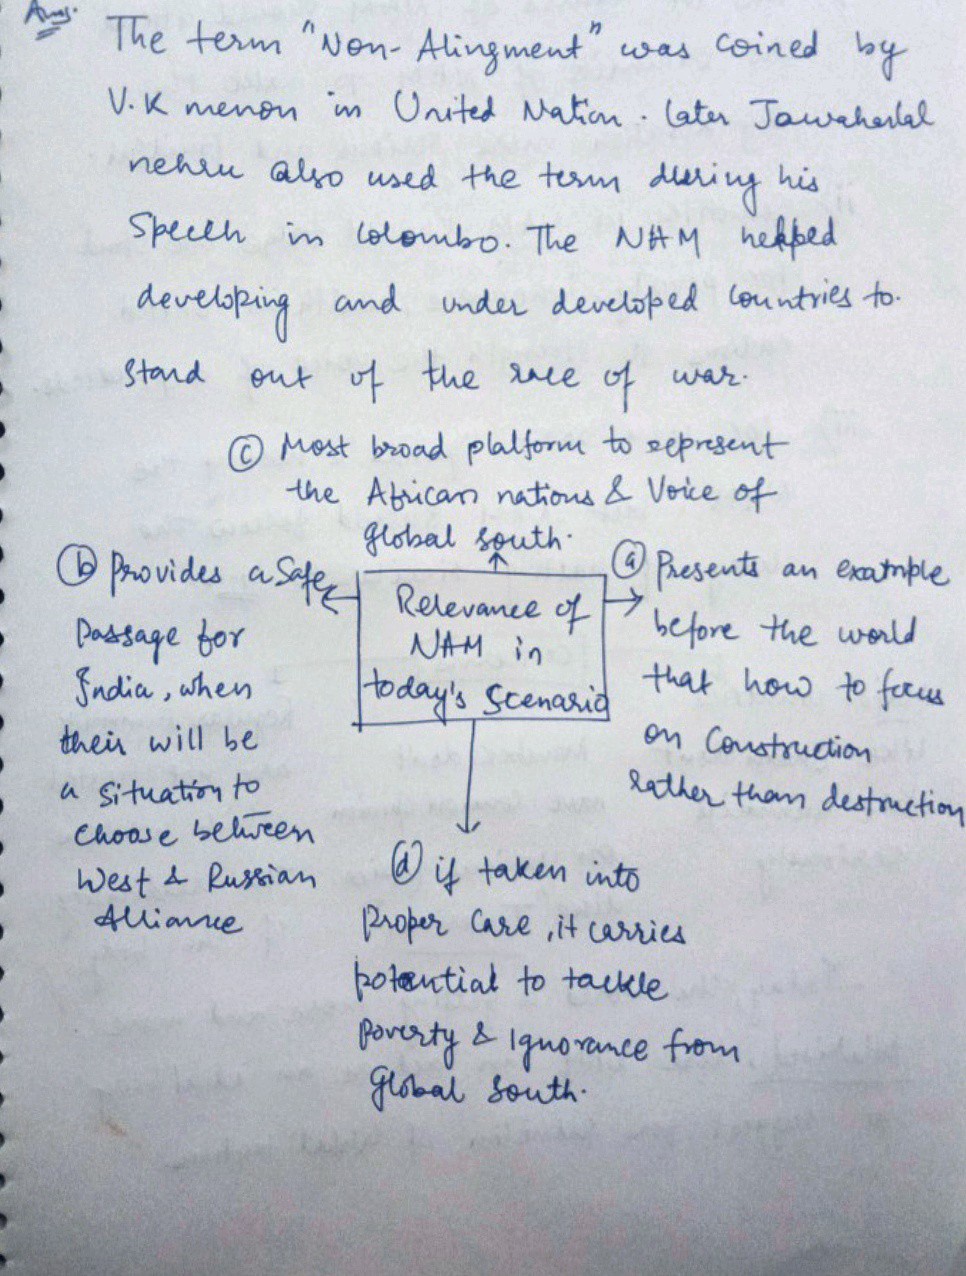 Ans.
The term "Non-Alingment" was coined by
V.K menon in United Nation. Later Jawaharlal
nehru also used the term during his
Speech in Colombo. The NAM helped
developing and under developed Countries to.
Stand out of the race of war.
(c) Most broad platform to represent
the African nations & Voice of
Global South.
(b) Provides a Safe
Passage for
India, when
their will be
a situation to
Choose between
West & Russian
Alliance
Relevance of
NAM in
today's Scenario
(a) Presents an example
before the world
that how to focus
on Construction
rather than destruction
(d) if taken into
Proper Care, it carries
potential to tackle
Poverty & Ignorance from
Global South.